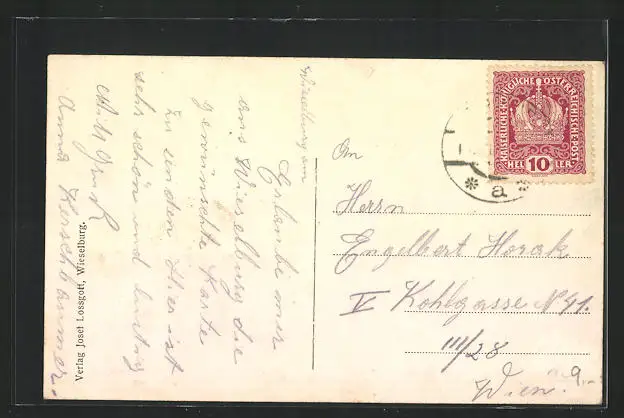 Wieselburg am
Erlaube mir
aus Wieselburg die
gewünschte Karte
zu senden Hier ist
sehr schön und lustig
Mit Gruß
Anna Kerschbaumer.
Verlag Josef Lossgott, Wieselburg.
KAISERLICHE KÖNIGLICHE ÖSTERREICHISCHE POST
HEL 10 LER
* a *
An
Herrn
Engelbert Horak
V Kohlgasse N 41.
III/28
Wien
9.-